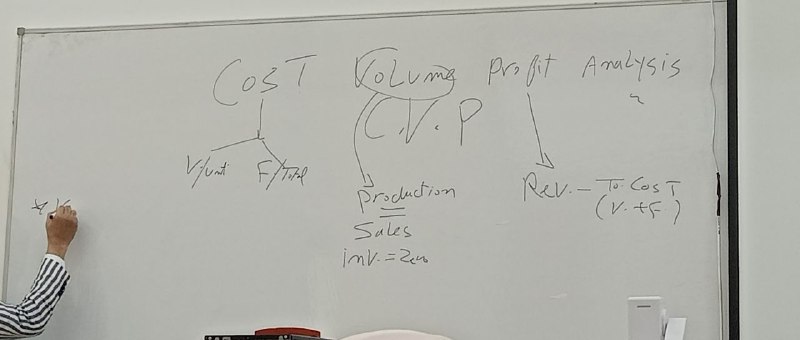 CosT Volume Profit Analysis
C.V.P
V/unit F/Total
Production
=
Sales
inv. = Zero
Rev. - To. CosT
(V. + F)